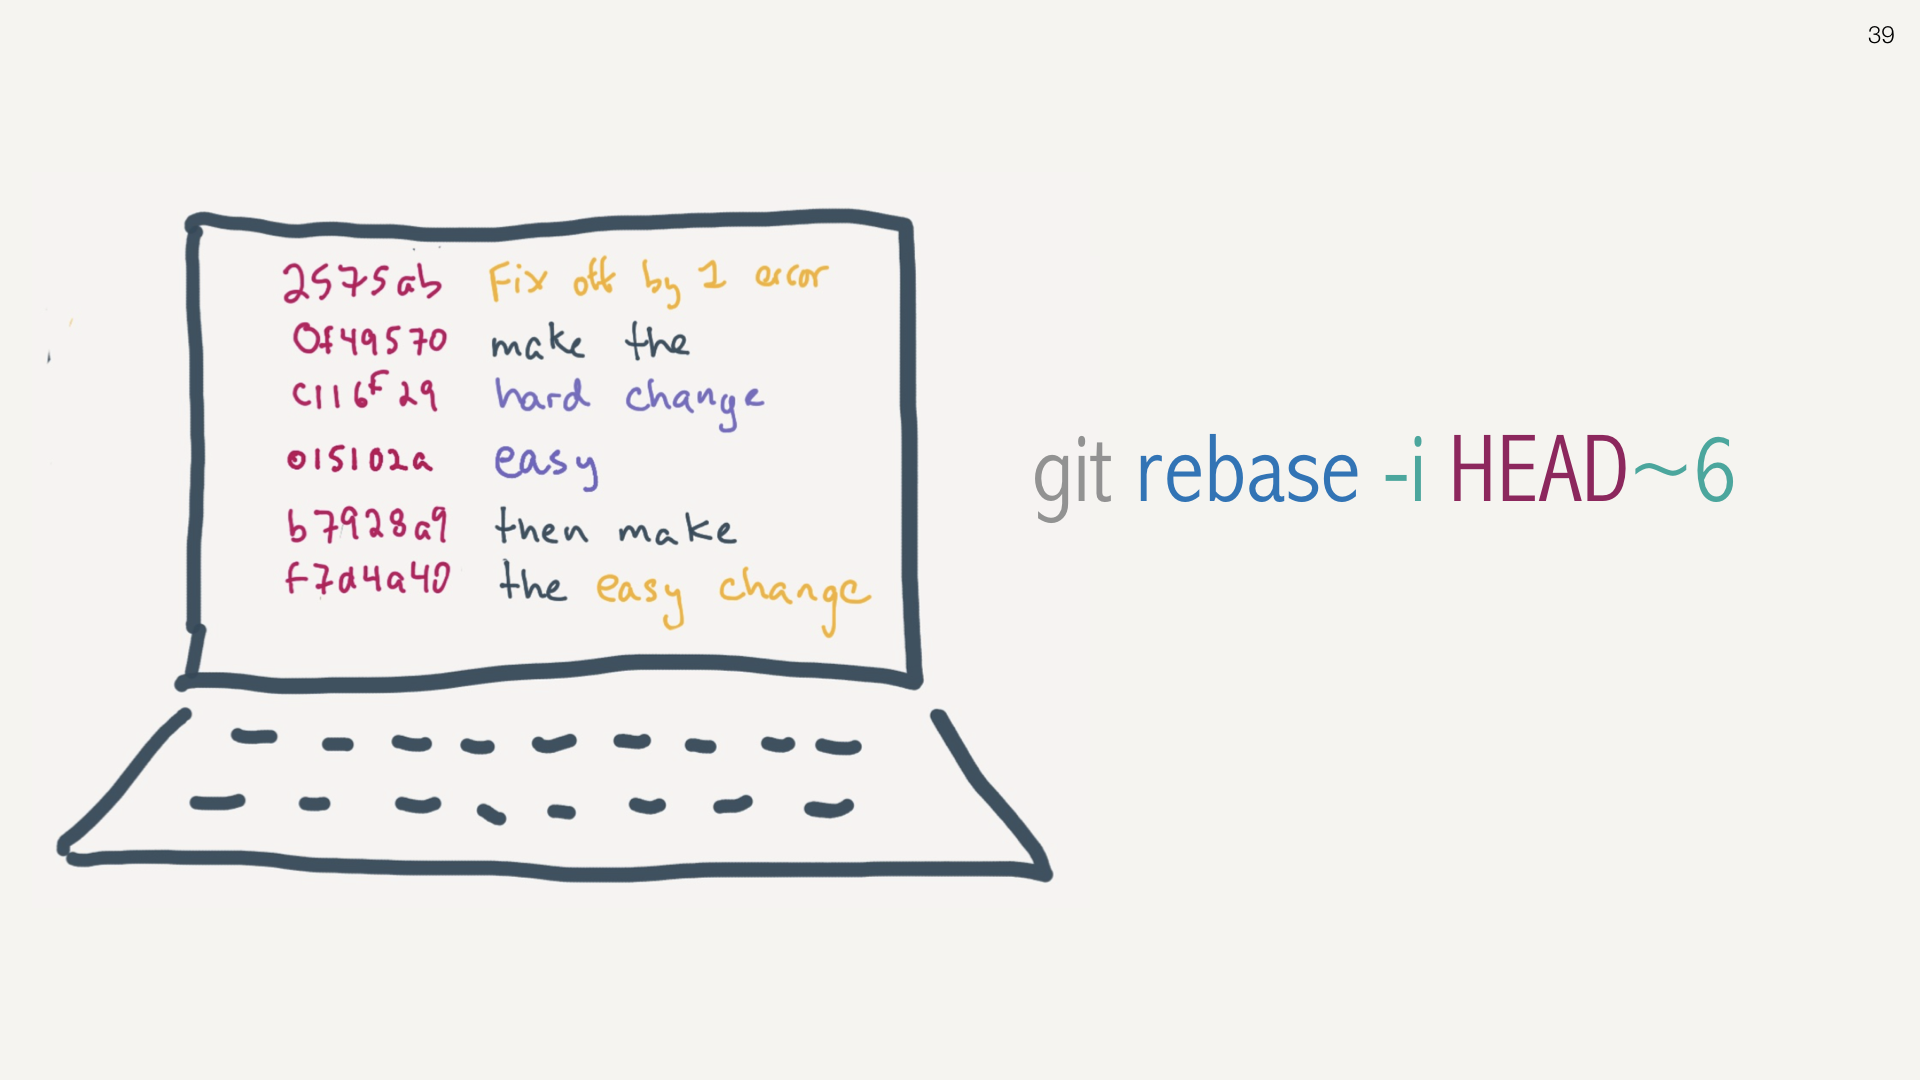 39
2575ab Fix off by 1 error
0f49570 make the
c116f29 hard change
015102a easy
b7928a9 then make
f7d4a40 the easy change
git rebase -i HEAD~6